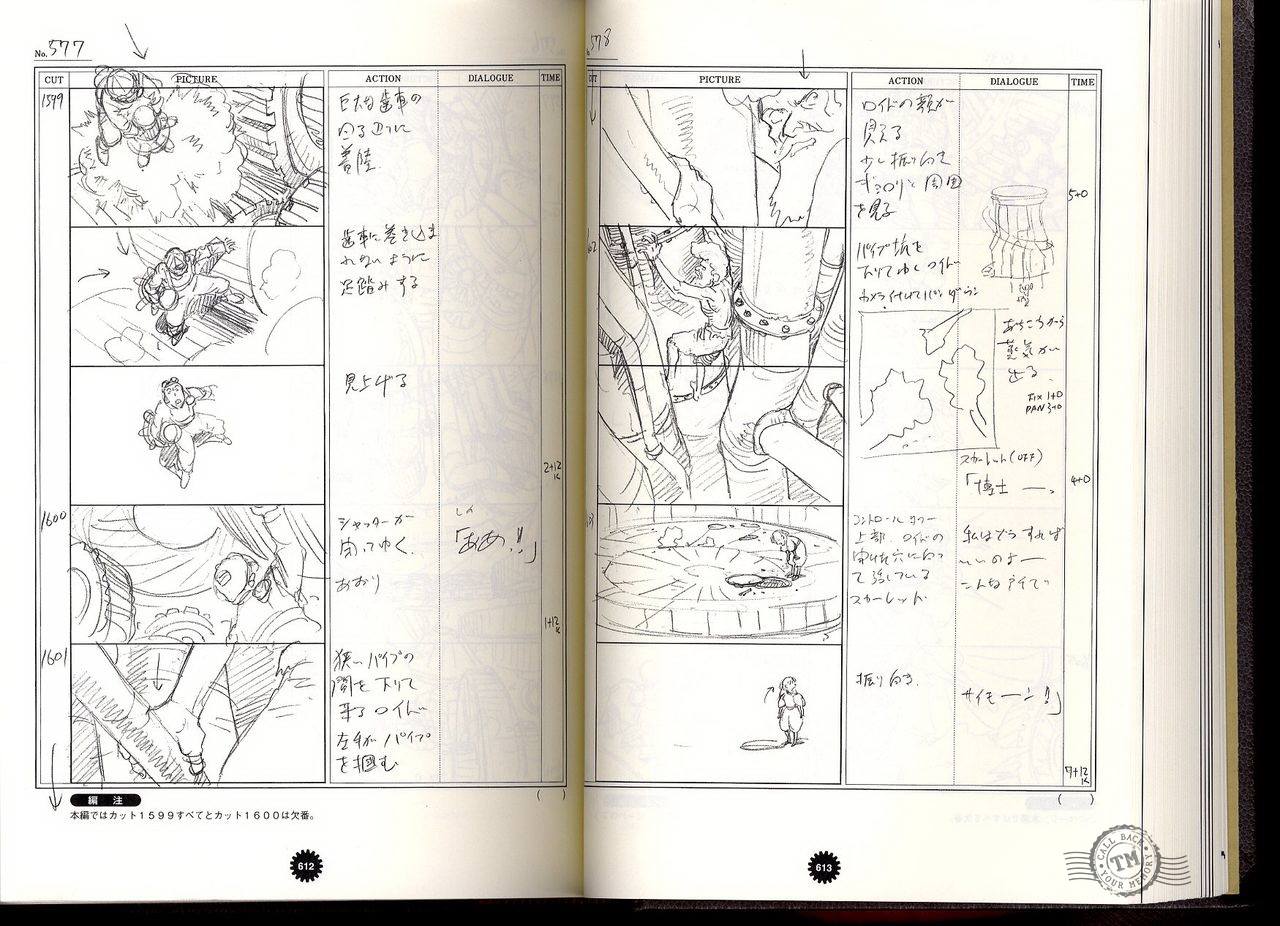 No. 577
CUT PICTURE ACTION DIALOGUE TIME
1599
巨大な歯車の
回る辺りに
着陸
歯車に巻き込ま
れないように
足踏みする
見上げる
2+12
K
1600
シャッターが
閉ってゆく.
あおり
「ああ!!」
1+12
K
1601
狭いパイプの
間を下りて
来るロイド
左手がパイプ
を掴む
( )
編 注
本編ではカット1599すべてとカット1600は欠番。
612
578
PICTURE ACTION DIALOGUE TIME
ロイドの顔が
見える
少し振り向き
ギョロリと周囲
を見る
5+0
パイプ坑を
下りてゆくロイド
カメラ付けてパンダウン
あちこちから
蒸気が
出る.
FIX 1+0
PAN 3+0
スカーレット(OFF)
「博士 —.
4+0
コントロールタワー
上部 ロイドの
スカーレット
私はどうすれば
いいのよー
振り向き.
サイモーン!!」
7+12
K
( )
613
CALL BACK
TM
YOUR MEMORY